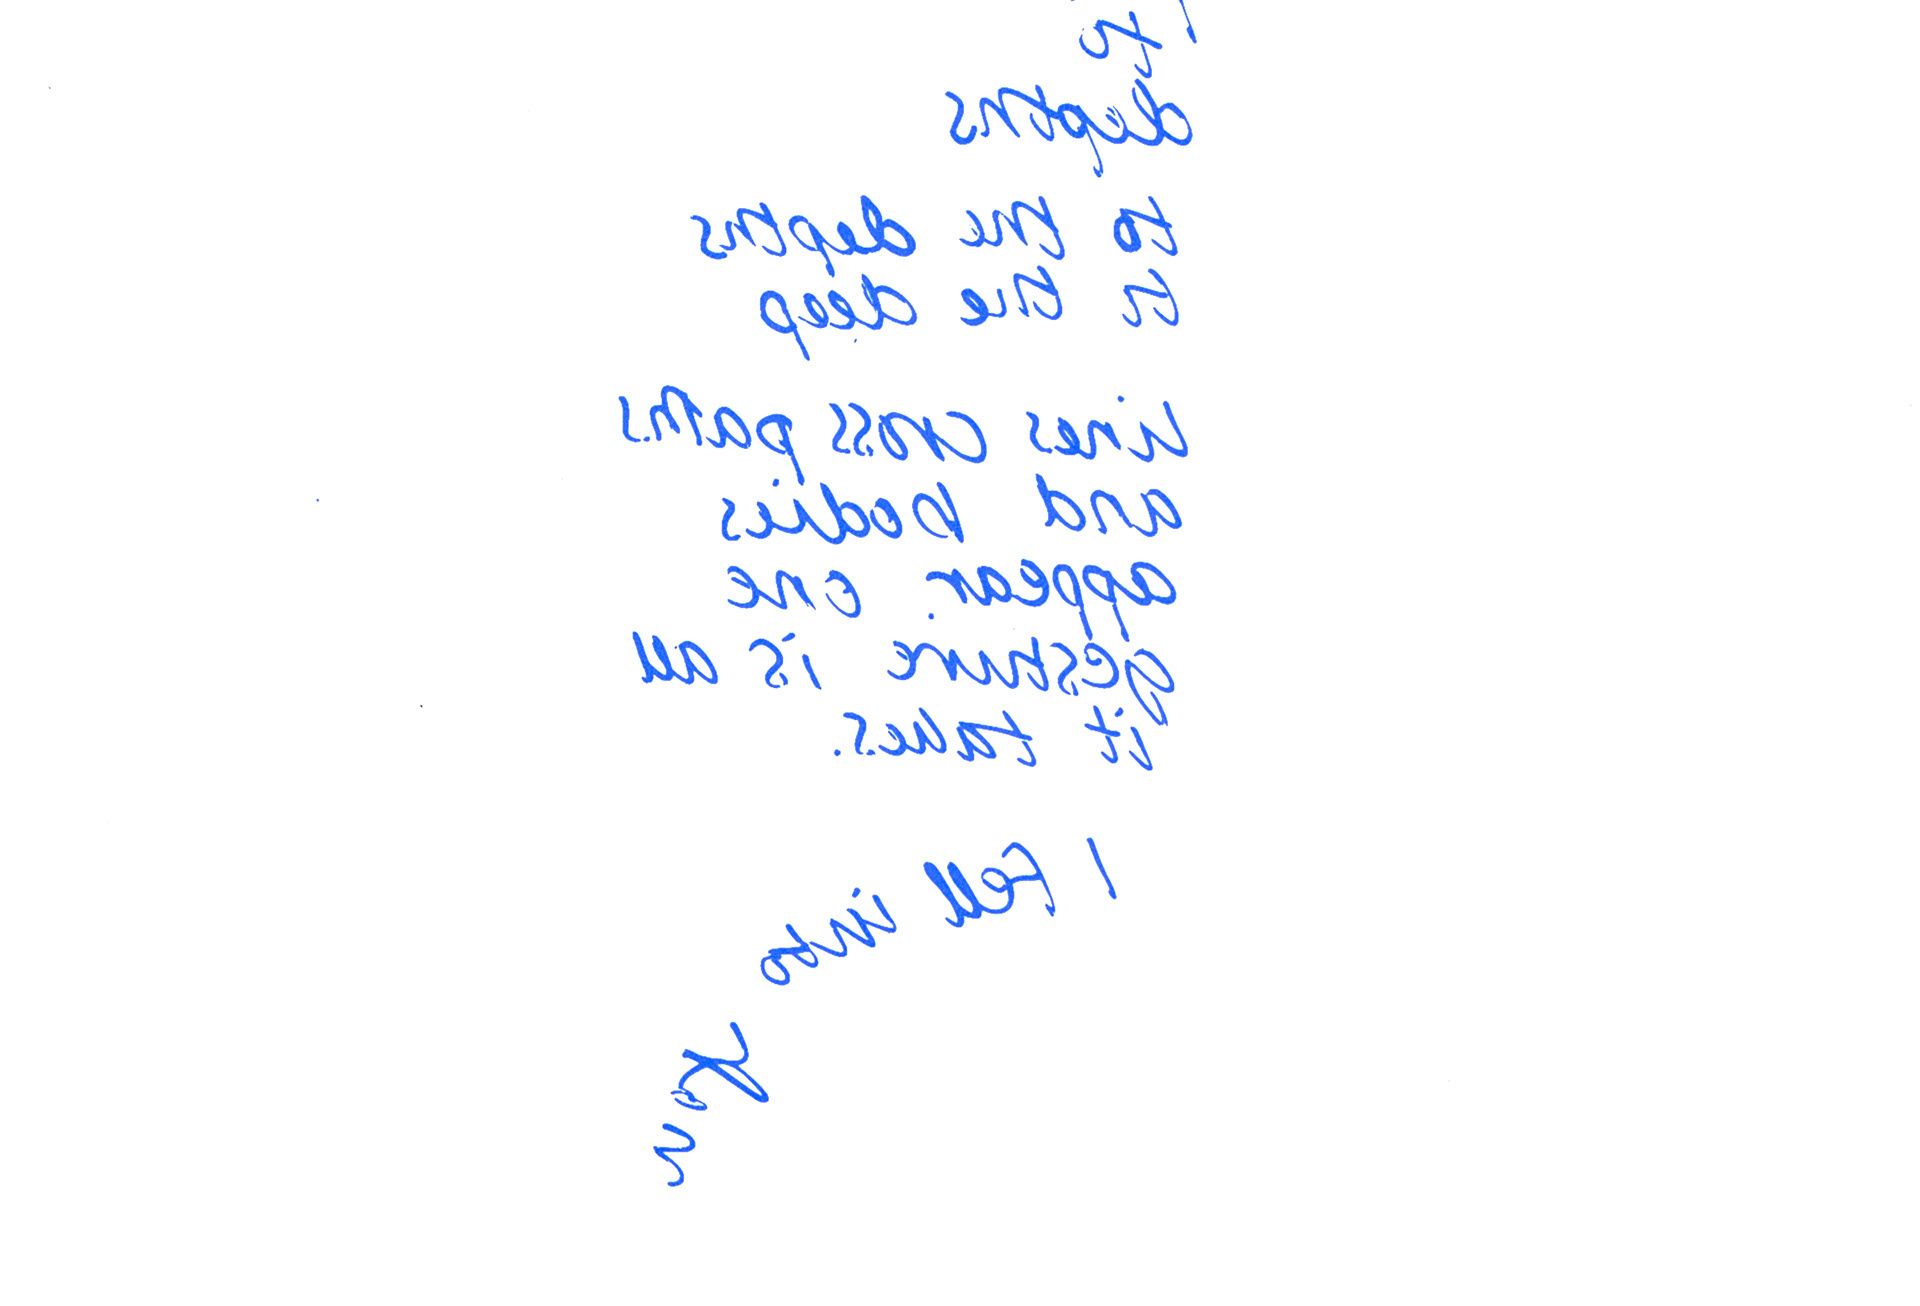 to
depths
to the depths
to the deep
lines cross paths
and bodies
appear. one
gesture is all
it takes.
I fell into
you